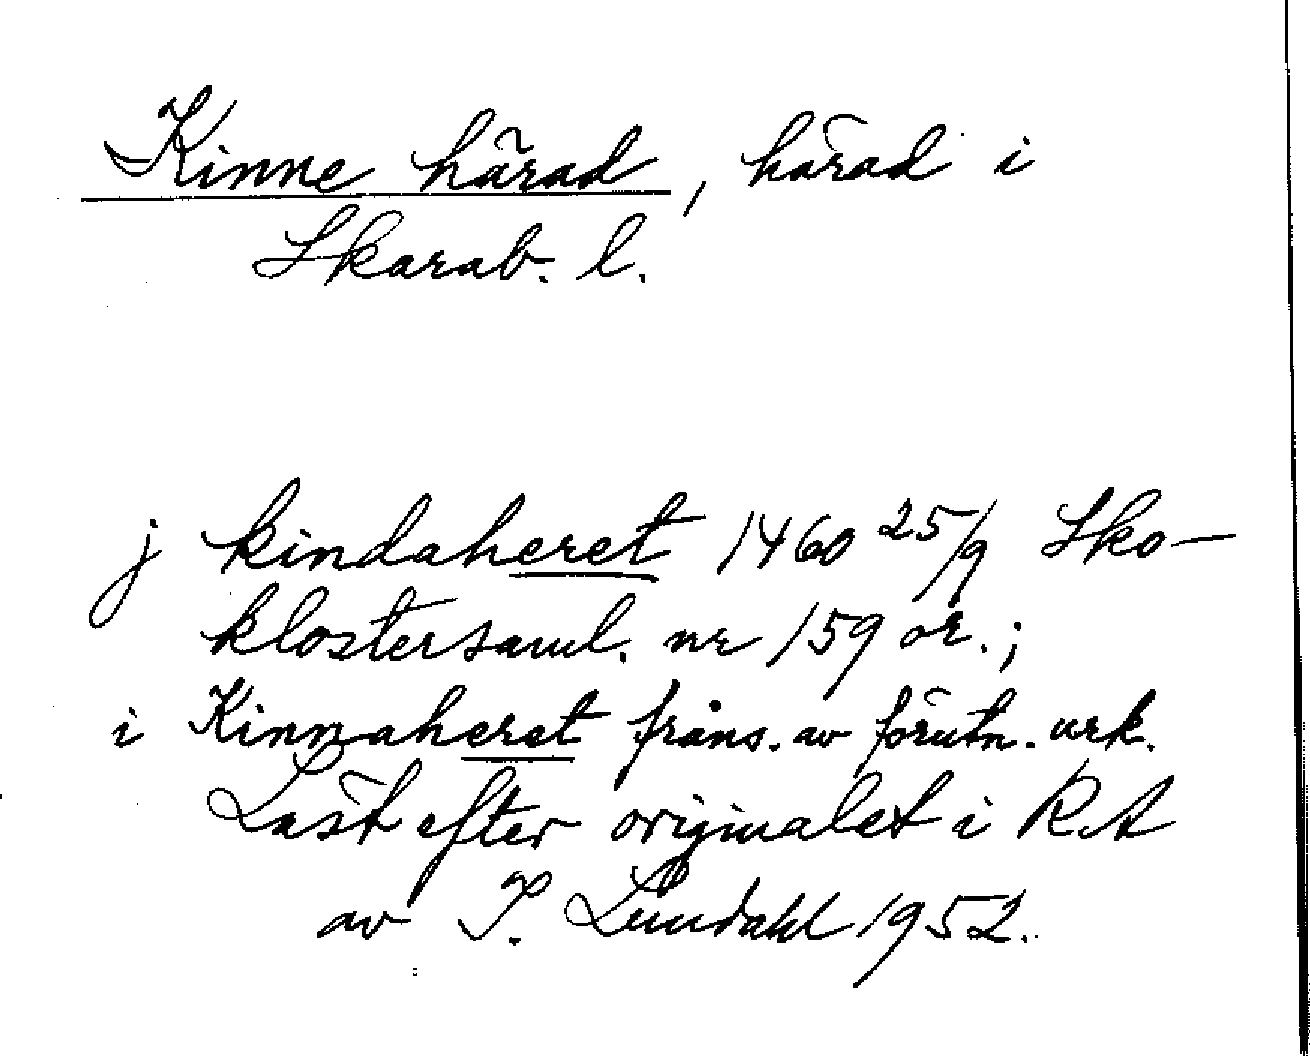 Kinne härad, härad i
Skarab. l.
j kindaheret 1460 25/9 Sko-
klostersaml. nr 159 or.;
i Kinnaheret fråns. av förutn. urk.
Läst efter originalet i RA
av I. Lundahl 1952.